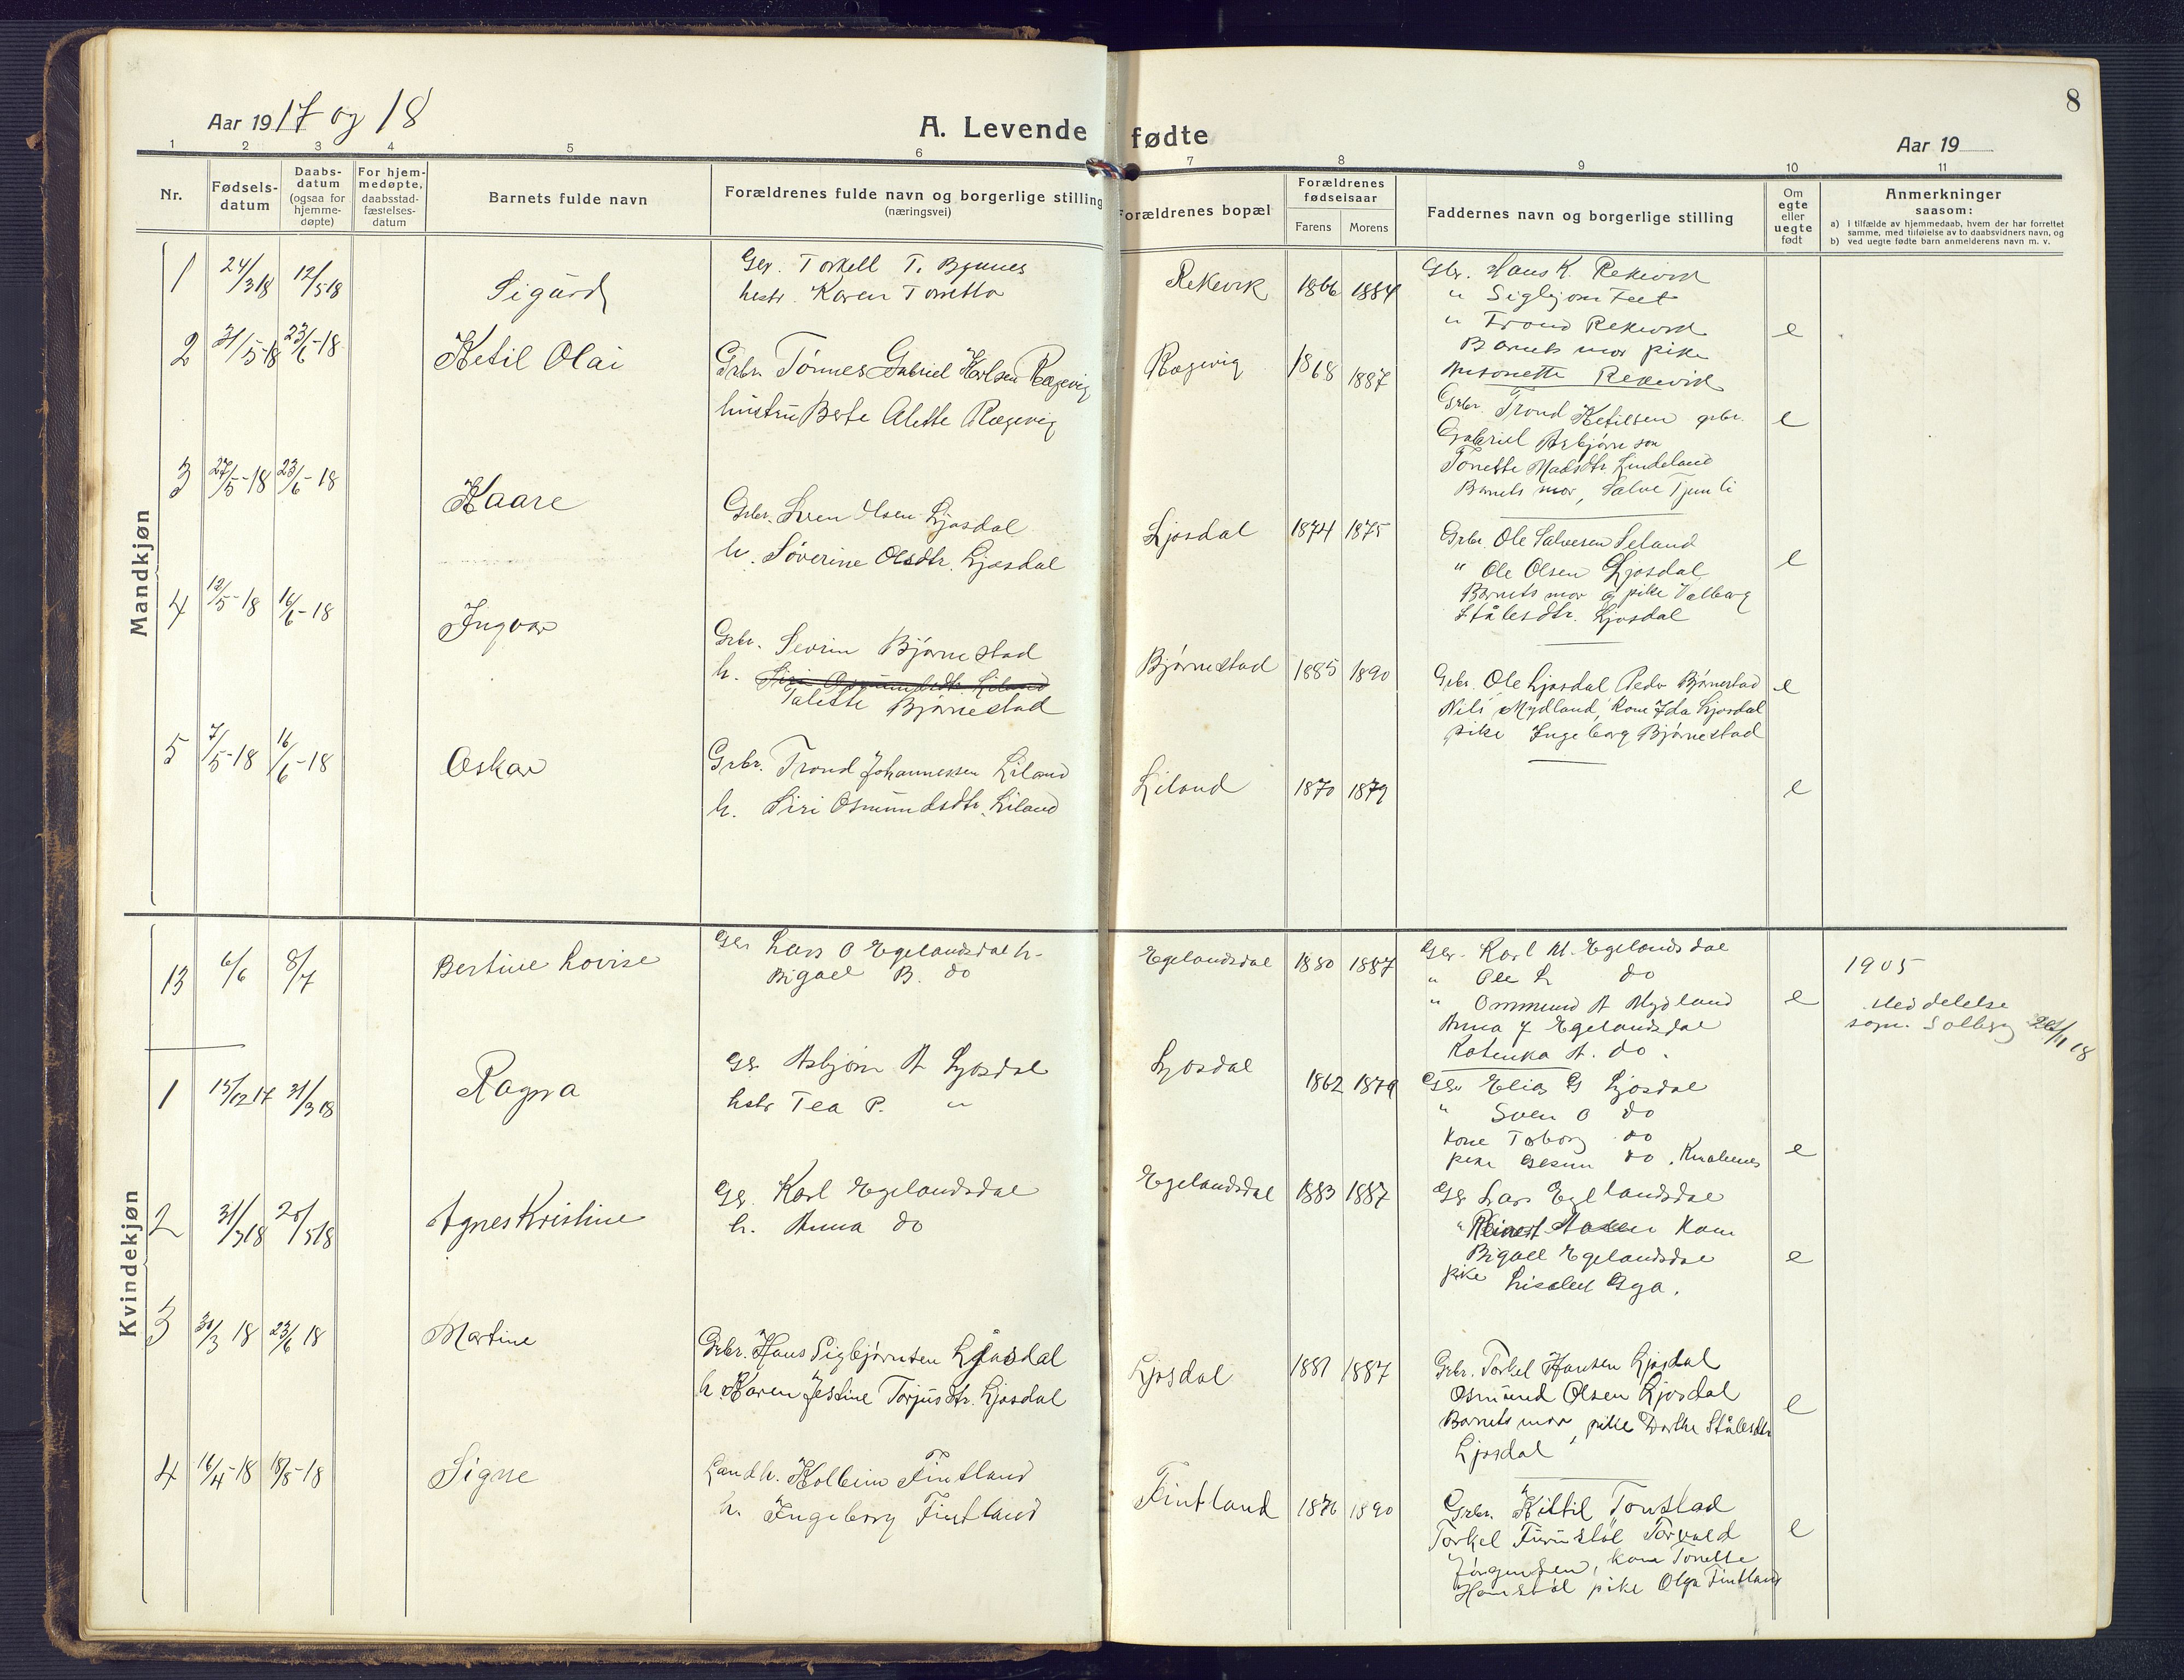 8
Aar 1917 og 18
A. Levende fødte
Aar 19
1 2 3 4 5 6 7 8 9 10 11
Nr.
Fødsels-
datum
Daabs-
datum
(ogsaa for
hjemme-
døpte)
For hjem-
medøpte,
daabsstad-
fæstelses-
datum
Barnets fulde navn
Forældrenes fulde navn og borgerlige stilling
(næringsvei)
Forældrenes bopæl
Forældrenes
fødselsaar
Farens Morens
Faddernes navn og borgerlige stilling
Om
egte
eller
uegte
født
Anmerkninger
saasom:
a) i tilfælde av hjemmedaab, hvem der har forrettet
samme, med tilføielse av to daabsvidners navn, og
b) ved uegte fødte barn anmelderens navn m. v.
Mandkjøn
1 24/3 18 12/5 18 Sigurd
Gbr. Torkell T.
hustr. Karen Tonetta
Rekevik 1866 1884
Gbr. Hans K. Rekevik
" Sigbjørn Feet
" Trond Rekevik
Barnets mor pike
Rekevik
e
2 31/5-18 23/6-18 Ketil Olai
Grbr. Tønnes Gabriel Karlsen Rægevig
hustru Berte Alette Rægevig
Rægevig 1868 1887
Grbr. Trond Ketilsen grbr.
Gabriel Asbjørnson
Tonette Madsdtr. Lindeland
Barnets mor, Salve Tjomli
e
3 27/5-18 23/6-18 Kaare
Grbr. Sven Olsen Ljosdal
h. Søverine Olsdtr. Ljosdal
Ljosdal 1874 1875
Grbr. Ole Salvesen Seland
" Ole Olsen Ljosdal
Barnets mor og pike Valborg
Stålesdtr. Ljosdal
e
4 12/5-18 16/6-18 Ingvar
Grbr. Sevrin Bjørnestad
h. Siri Osmundsdtr. Liland
Talette Bjørnestad
Bjørnestad 1885 1890
Grbr. Ole Ljosdal Peder Bjørnestad
Nils Mydland, Kone Ida Ljosdal
pike Ingeborg Bjørnestad
e
5 7/5-18 16/6-18 Oskar
Grbr. Trond Johannessen Liland
h. Siri Osmundsdtr. Liland
Liland 1870 1879
e
Kvindekjøn
13 6/6 8/7 Bertine Lovise
Gbr Lars O Egelandsdal h.
Bigael B. do
Egelandsdal 1880 1887
Gbr. Karl M. Egelandsdal
" Ole L do
" Ommund A Mydland
Anna J Egelandsdal
Katinka A. do.
e
1905
Meddelelse
sogn. Solberg 26/11 18
1 15/12 17 31/3 18 Ragna
Gb. Asbjørn A Ljosdal
hstr Tea P. "
Ljosdal 1862 1879
Gbr Elias G Ljosdal
" Sven O do
Kone Taborg do
pike do, Kvalenes
e
2 31/3 18 20/5 18 Agnes Kristine
Gb. Karl Egelandsdal
h. Anna do
Egelandsdal 1883 1887
Gb Lars Egelandsdal
" Reinert Aasen Kone
Bigael Egelandsdal
pike Ega.
e
3 30/3 18 23/6 18 Martine
Grbr. Hans Sigbjørnsen Ljosdal
h. Karen Jestine Torjusdtr. Ljosdal
Ljosdal 1881 1887
Grbr. Torkel Hansen Ljosdal
Osmund Olsen Ljosdal
Barnets mor, pike Dorthe Stålesdtr
Ljosdal
e
4 16/4-18 18/8-18 Signe
Landh. Kolbein Fintland
h. Ingeborg Fintland
Fintland 1876 1890
Grbr. Kittil Tonstad
Torkel Furustøl Torvald
Jørgensen, kone Tonette
Homstøl pike Olga Fintland
e